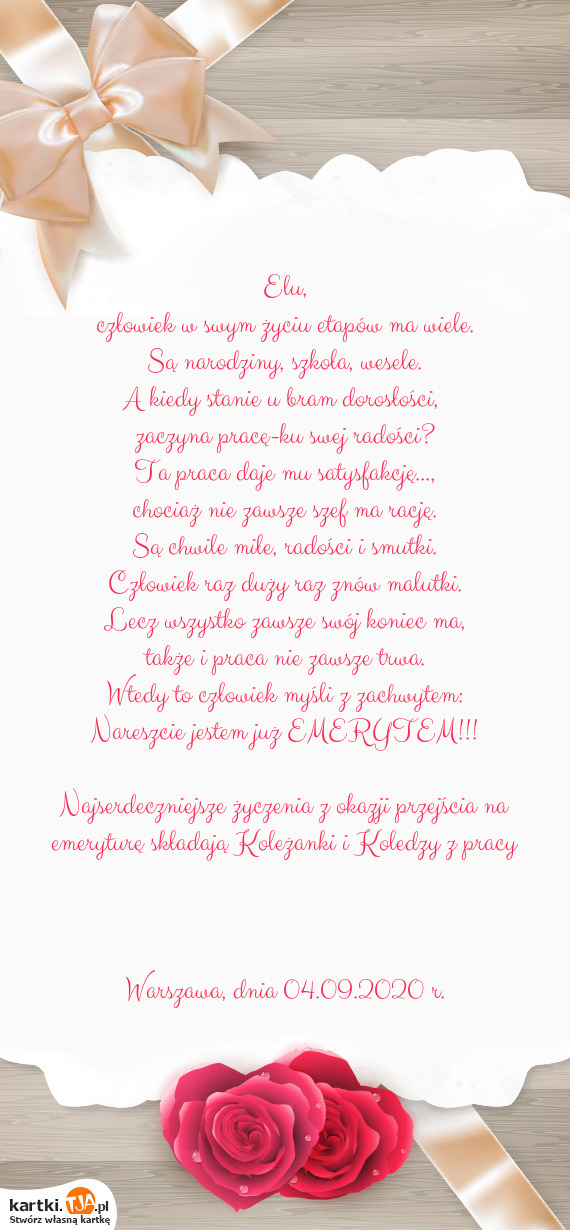 Elu,
człowiek w swym życiu etapów ma wiele.
Są narodziny, szkoła, wesele.
A kiedy stanie u bram dorosłości,
zaczyna pracę-ku swej radości?
Ta praca daje mu satysfakcję...,
chociaż nie zawsze szef ma rację.
Są chwile miłe, radości i smutki.
Człowiek raz duży raz znów malutki.
Lecz wszystko zawsze swój koniec ma,
także i praca nie zawsze trwa.
Wtedy to człowiek myśli z zachwytem:
Nareszcie jestem już EMERYTEM!!!
Najserdeczniejsze życzenia z okazji przejścia na
emeryturę składają Koleżanki i Koledzy z pracy
Warszawa, dnia 04.09.2020 r.
kartki.TJA.pl
Stwórz własną kartkę